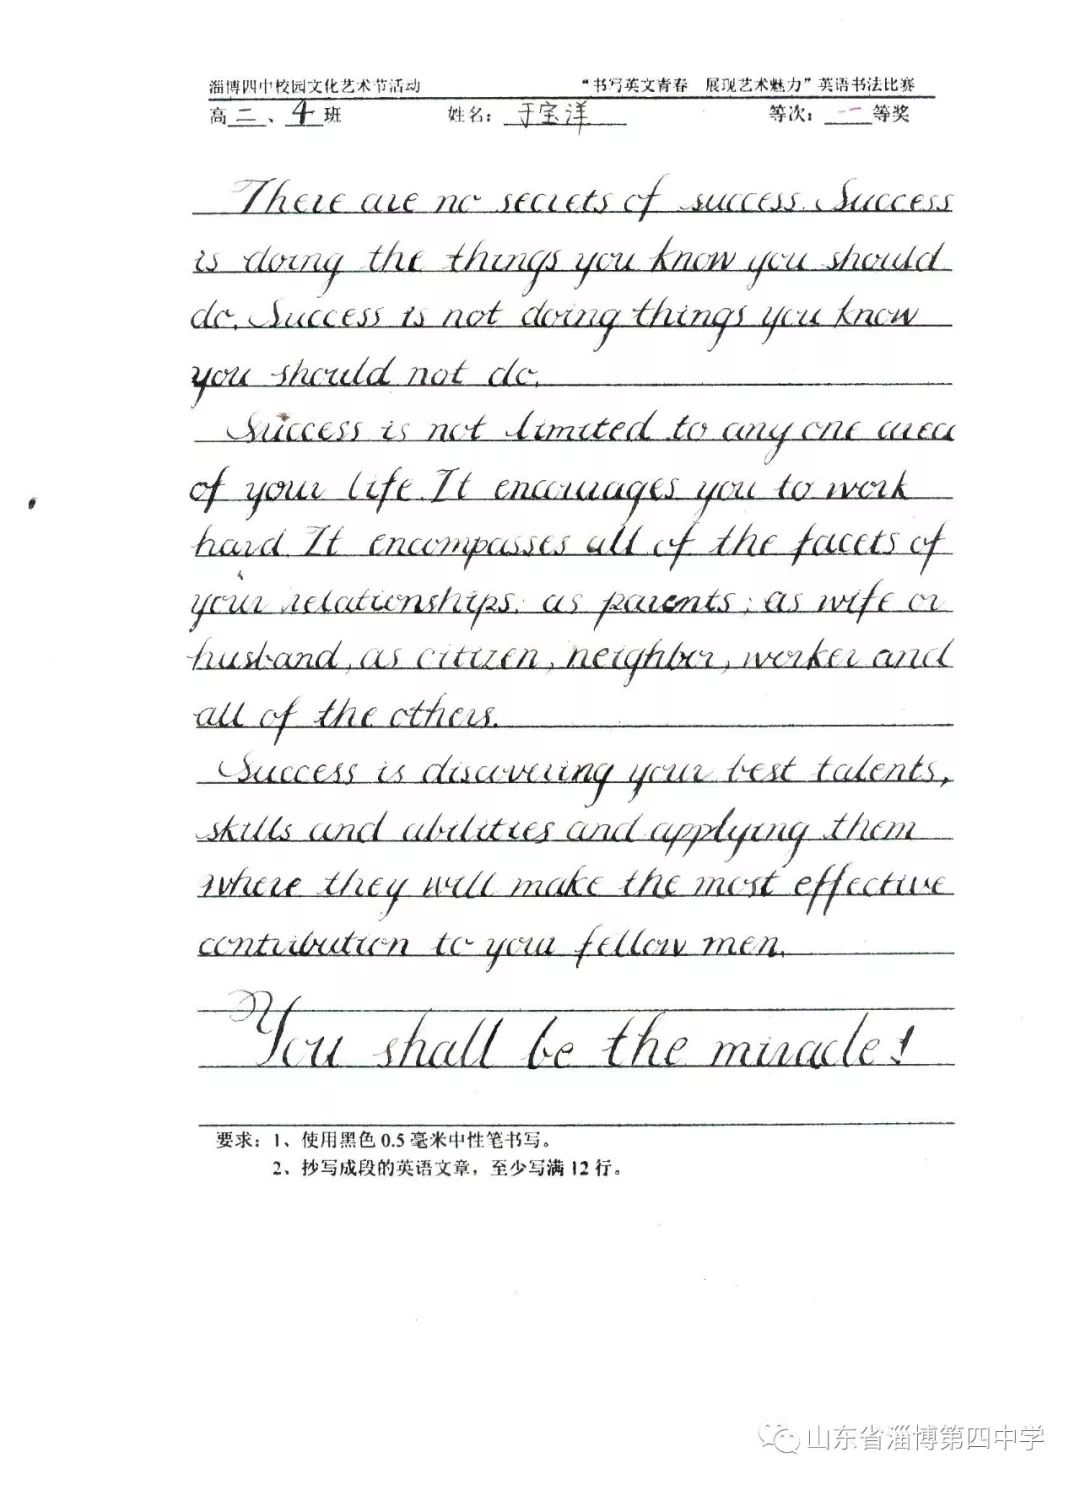 淄博四中校园文化艺术节活动 “书写英文青春 展现艺术魅力”英语书法比赛
高二、4班 姓名：于宝洋 等次：一等奖
There are no secrets of success. Success
is doing the things you know you should
do. Success is not doing things you know
you should not do.
Success is not limited to any one area
of your life. It encourages you to work
hard. It encompasses all of the facets of
your relationships: as parents; as wife or
husband, as citizen, neighbor, worker and
all of the others.
Success is discovering your best talents,
skills and abilities and applying them
where they will make the most effective
contribution to your fellow men.
You shall be the miracle!
要求：1、使用黑色0.5毫米中性笔书写。
2、抄写成段的英语文章，至少写满12行。
山东省淄博第四中学